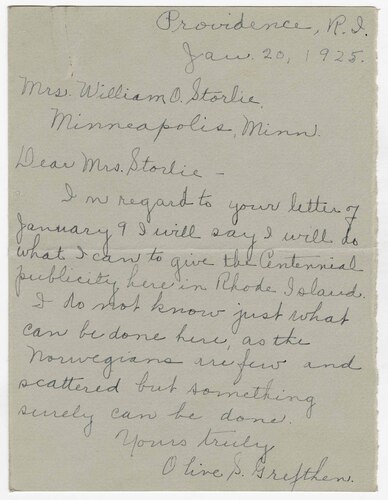 Providence, R.I.
Jan. 20, 1925.
Mrs. William O. Storlie,
Minneapolis, Minn.
Dear Mrs. Storlie –
In regard to your letter of
January 9 I will say I will do
what I can to give the Centennial
publicity here in Rhode Island.
I do not know just what
can be done here, as the
Norwegians are few and
scattered but something
surely can be done.
Yours truly
Olive S.